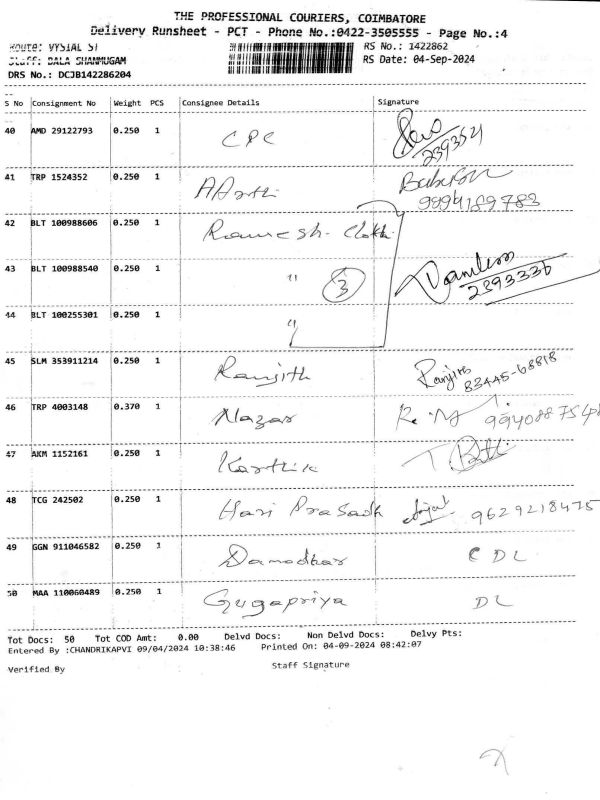 THE PROFESSIONAL COURIERS, COIMBATORE
Delivery Runsheet - PCT - Phone No.:0422-3505555 - Page No.:4
Route: VYSIAL ST RS No.: 1422862
Staff: BALA SHANMUGAM RS Date: 04-Sep-2024
DRS No.: DCJB142286204
S No Consignment No Weight PCS Consignee Details Signature
40 AMD 29122793 0.250 1 CPC 2393521
41 TRP 1524352 0.250 1 AArthi 9894189783
42 BLT 100988606 0.250 1 Ramesh - Cloth
43 BLT 100988540 0.250 1 " 3 2393336
44 BLT 100255301 0.250 1 "
45 SLM 353911214 0.250 1 Ranjith Ranjith 83445-68818
46 TRP 4003148 0.370 1 Nazar
47 AKM 1152161 0.250 1 Karthik
48 TCG 242502 0.250 1 Hari Prasadh 9629218475
49 GGN 911046582 0.250 1 Damodhar C DL
50 MAA 110060489 0.250 1 Gugapriya DL
Tot Docs: 50 Tot COD Amt: 0.00 Delvd Docs: Non Delvd Docs: Delvy Pts:
Entered By :CHANDRIKAPVI 09/04/2024 10:38:46 Printed On: 04-09-2024 08:42:07
Verified By Staff Signature